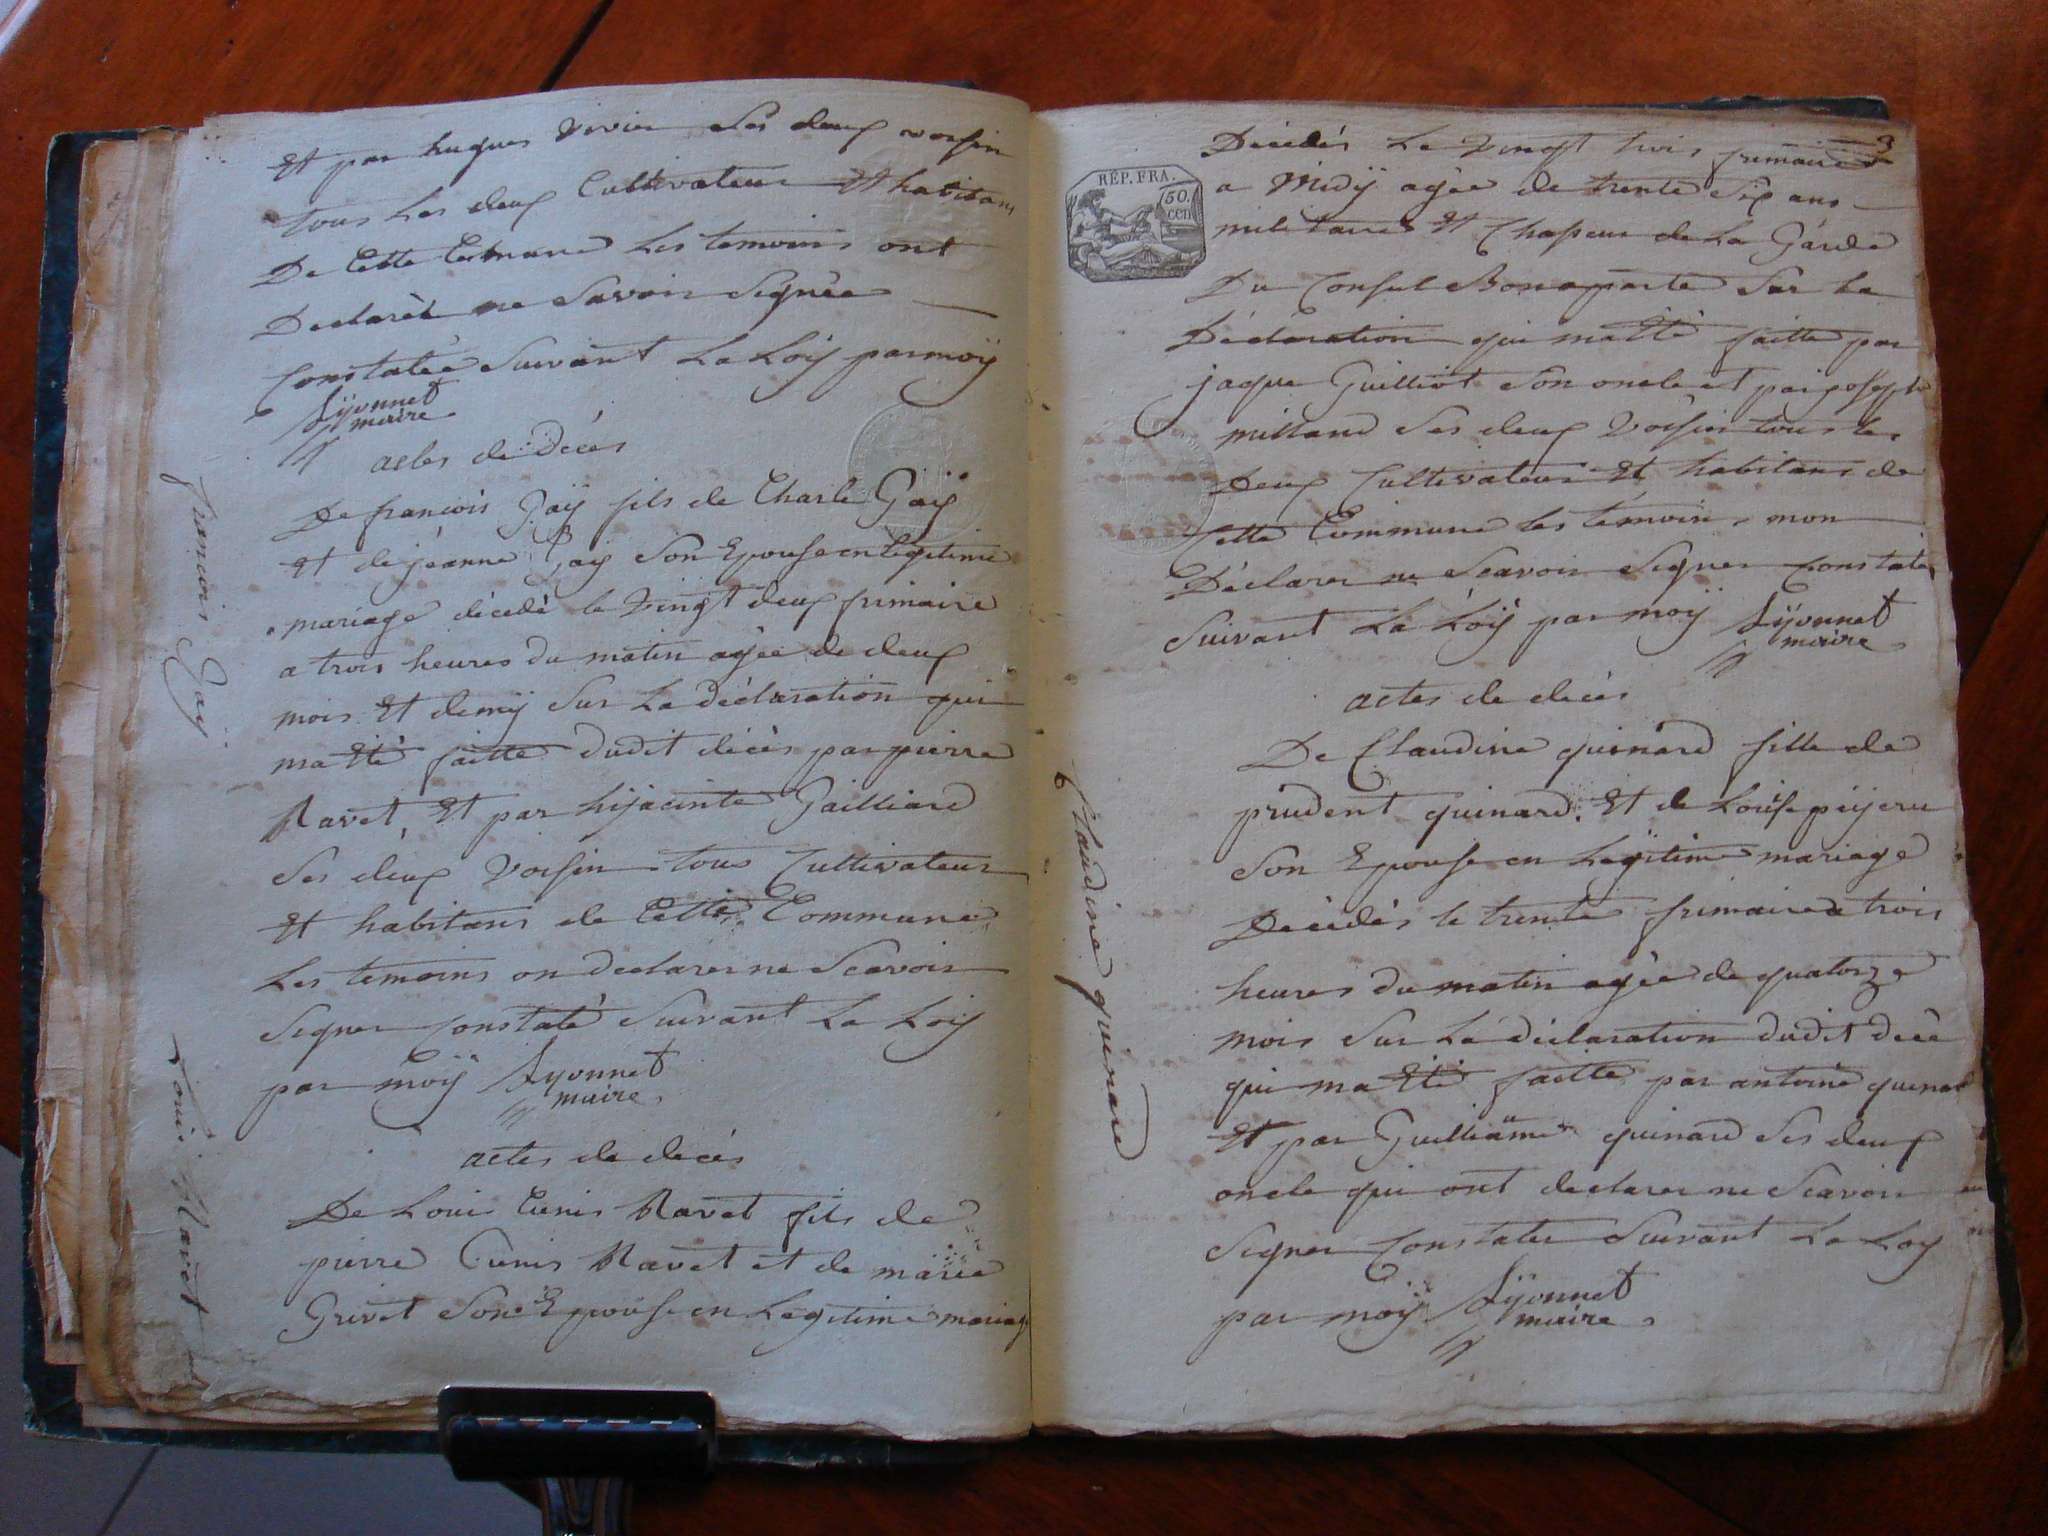 Et par hugues vivier Ses deux voisin
tous Les deux Cultivateur Et habitans
De Cette Commune Les temoins ont
Declarèt ne Savoir Signèe
Constatée Suivant La Loij par moÿ
Lÿonnet
maire
actes de Décés
De francois Gaÿ fils de Charle Gaÿ
Et de jéanne Gaij Son Epouse en Legitime
mariage décedè le Vingt deux frimaire
a trois heures du matin agée de deux
mois Et demij Sur La Déclaration qui
ma Etè faitte dudit décès par pierre
Ravet, Et par hijacinte Gailliard
Ses deux Voisin tous Cultivateur
Et habitans de Cette Commune
Les temoins on declarer ne Scavoir
Signer Constaté Suivant La Loij
par moÿ Lyonnet
maire
actes de decés
De Louis Ravet fils de
pierre Ravet et de marie
Grivet Son Epouse en Legitime mariage
francois Gaij
Louis Ravet
3
RÉP. FRA.
50.
CEN
Décédés Le Vingt trois frimaire
a Midÿ agée de trente Six ans
militaire Et Chaseur de La Garde
Du Consul Bonaparte Sur La
Déclaration qui ma Etè faitte par
jaque Guilliot Son oncle et par joseph
milland Ses deux Voisin tous les
Deux Cultivateur Et habitans de
Cette Commune les témoins mon
Déclarer ne Scavoir Signer Constatés
Suivant La Loÿ par moÿ Lÿonnet
maire
actes de decès
De Claudine quinard fille de
prudent quinard. Et de Louise
Son Epouse en Legitime mariage
Décédés le trente frimaire a trois
heures du matin agée de quatorze
mois Sur La déclaration dudit decè
qui ma Etè faitte par antoine quinard
Et par Guilliäme quinard Ses deux
oncle qui ont declarer ne Scavoir
Signer Constater Suivant La Loy
par moÿ Lÿonnet
maire
Claudine quinard